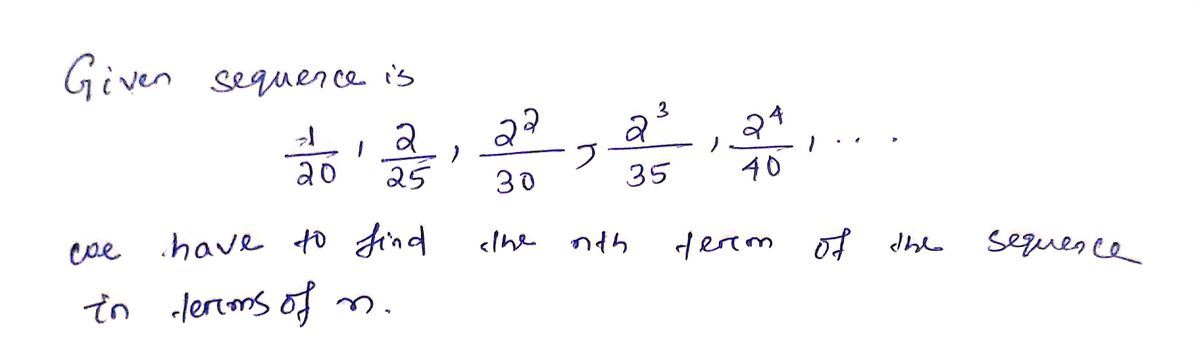 Given sequence is
1/20, 2/25, 2²/30, 2³/35, 2⁴/40, ....
we have to find the nth term of the sequence
in terms of n.